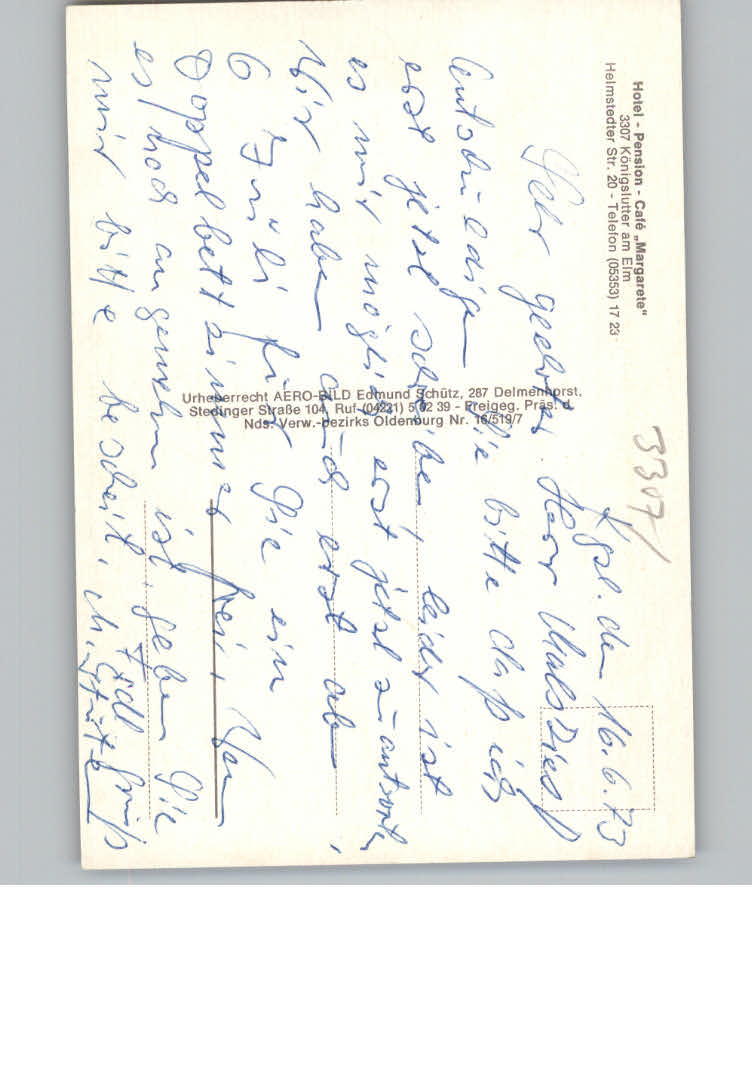 Hotel - Pension - Café „Margarete"
3307 Königslutter am Elm
Helmstedter Str. 20 - Telefon (05353) 17 23
3307/
Kgsl. den 16.6.73
Sehr geehrter Herr
Entschuldigen Sie bitte daß ich
erst jetzt schreibe, leider ist
es mir möglich erst jetzt zu antworten,
Wir haben auch erst ab
6 Juli für Sie ein
Doppelbettzimmer frei, Wenn
es noch angenehm ist, geben Sie
mir bitte bescheit,
Frdl Gruß
Urheberrecht AERO-BILD Edmund Schütz, 287 Delmenhorst,
Stedinger Straße 104, Ruf (04221) 5 02 39 - Freigeg. Präs. d.
Nds. Verw.-Bezirks Oldenburg Nr. 16/519/7